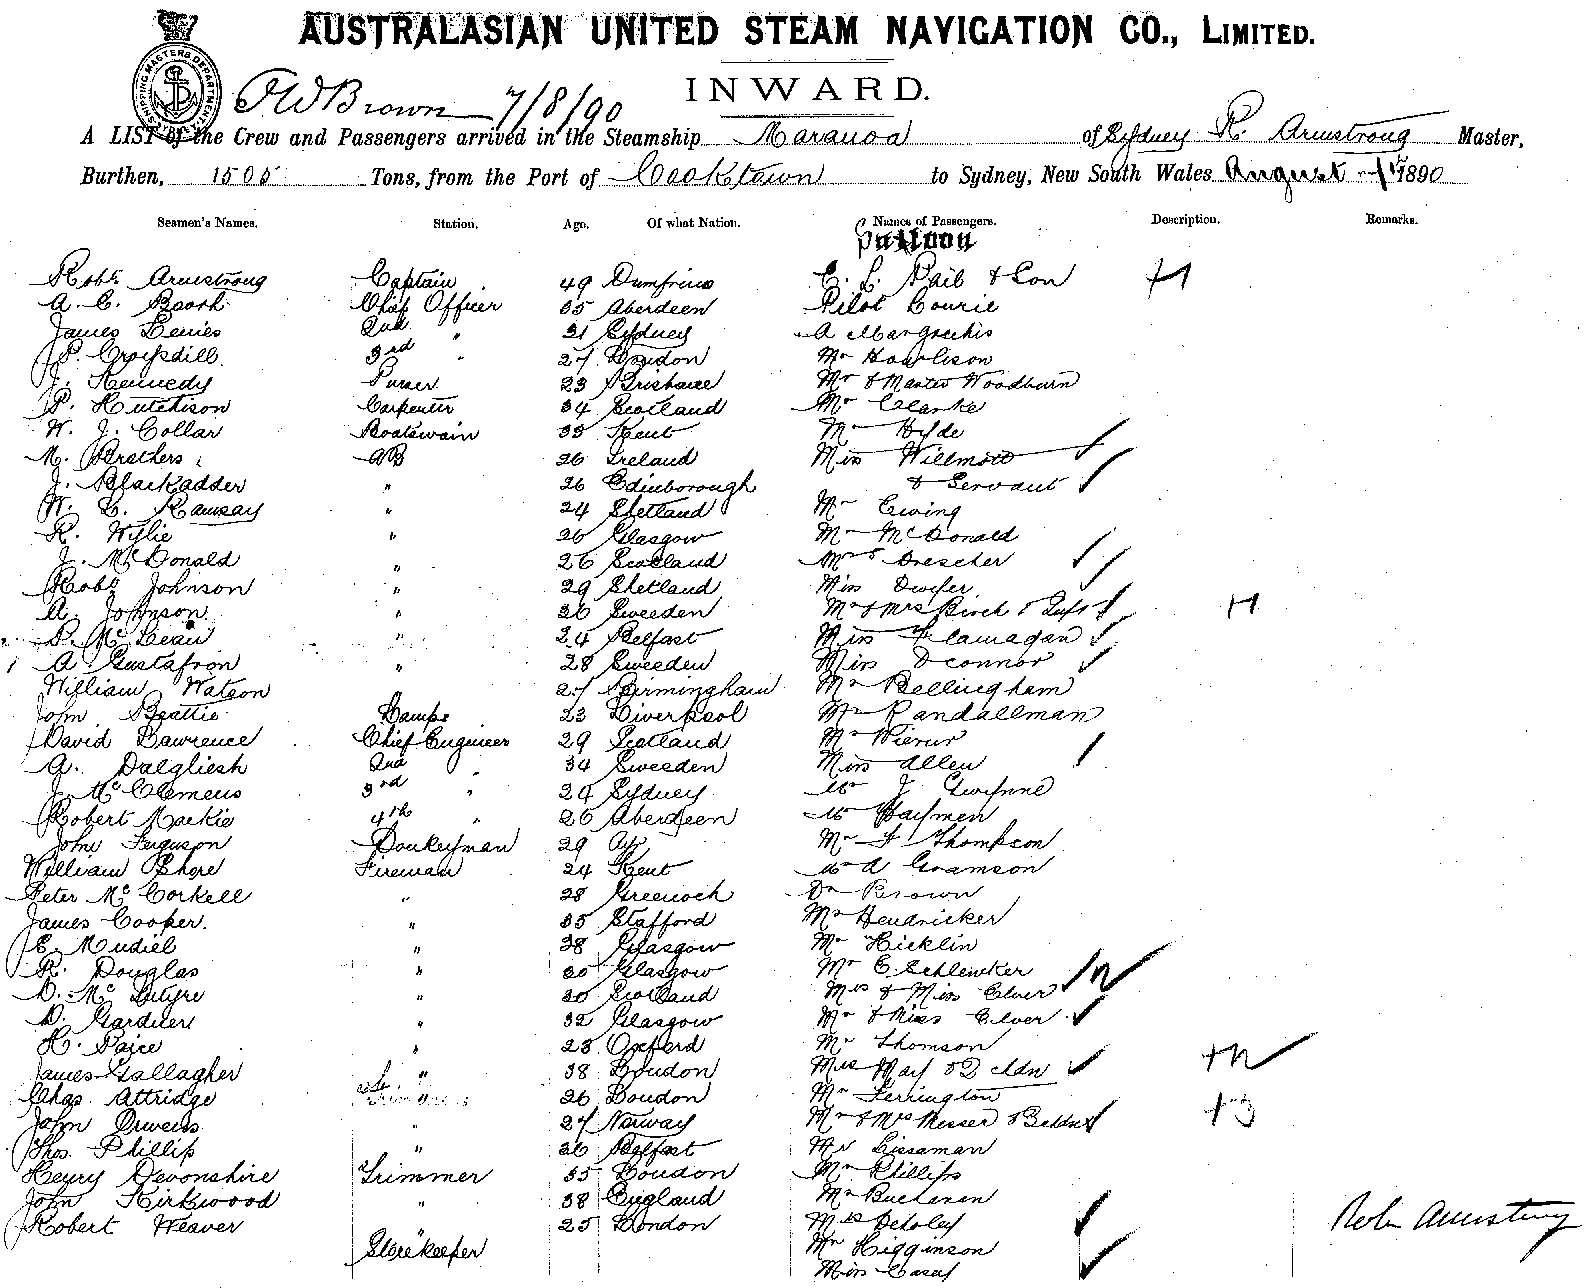 AUSTRALASIAN UNITED STEAM NAVIGATION CO., LIMITED.
INWARD.
SHIPPING MASTERS DEPARTMENT
7/8/90
A LIST of the Crew and Passengers arrived in the Steamship Maranoa of Sydney R. Armstrong Master,
Burthen, 1505 Tons, from the Port of Cooktown to Sydney, New South Wales August 1890
Seamen's Names. Station. Age. Of what Nation. Names of Passengers. Description. Remarks.
Saloon
Robt. Armstrong Captain 49 Dumfries E. L. & Son
A. C. Chief Officer 35 Aberdeen Pilot Courie
James 2nd " 31 Sydney A
P. Croysdill 3rd " 27 London Mr
J. Kennedy Purser 23 Brisbane Mr & Master Woodburn
P. Hutchison Carpenter 34 Scotland Mr Clarke
W. J. Collar Boatswain 33 Kent Mr Hyde
M. Brothers AB 26 Ireland Miss Willmott
J. Blackadder " 26 Edinborough & Servant
W. Ramsay " 24 Shetland Mr Ewing
R. Wylie " 26 Glasgow Mr McDonald
J. McDonald " 26 Scotland Mrs Drescher
Robt Johnson " 29 Shetland Miss Dwyer
A. Johnson " 26 Sweeden Mr & Mrs Birch &
P. McLean " 24 Belfast Miss Flannagan
A Gustafson " 28 Sweeden Miss Oconnor
William Watson 27 Birmingham Mr Bellingham
John Beattie Lamps 23 Liverpool Mr Randallman
David Lawrence Chief Engineer 29 Scotland Mr
A. Dalgliesh 2nd " 34 Sweeden Miss Allen
J. McClemens 3rd " 24 Sydney Mr J Gwynne
Robert Mackie 4th " 26 Aberdeen Mr Haymen
John Ferguson Donkeyman 29 Ayr Mr F Thompson
William Shore Fireman 24 Kent Mr A Gramson
Peter McCorkell " 28 Greenock Dr Brown
James Cooper. " 35 Stafford Mr Hendricker
E. Mudiel " 38 Glasgow Mr Hicklin
R. Douglas " 30 Glasgow Mr E Schlencker
D. McIntyre " 30 Scotland Mrs & Miss Elver
D. Gardner " 32 Glasgow Mr & Miss Elver
H. Paice " 23 Oxford Mr Thomson
James Gallagher " 38 London Mrs May & 2 chdn
Chas. Attridge " 26 London Mr Ferrington
John " 27 Norway Mr & Mrs Messer &
Thos. Phillips " 26 Belfast Mr Lissaman
Henry Devonshire Trimmer 35 London Mr Phillips
John Kirkwood " 38 England Mr Buchanan
Robert Weaver " 25 London Mrs
Storekeeper Mr Higginson
Miss Casey
Robt Armstrong